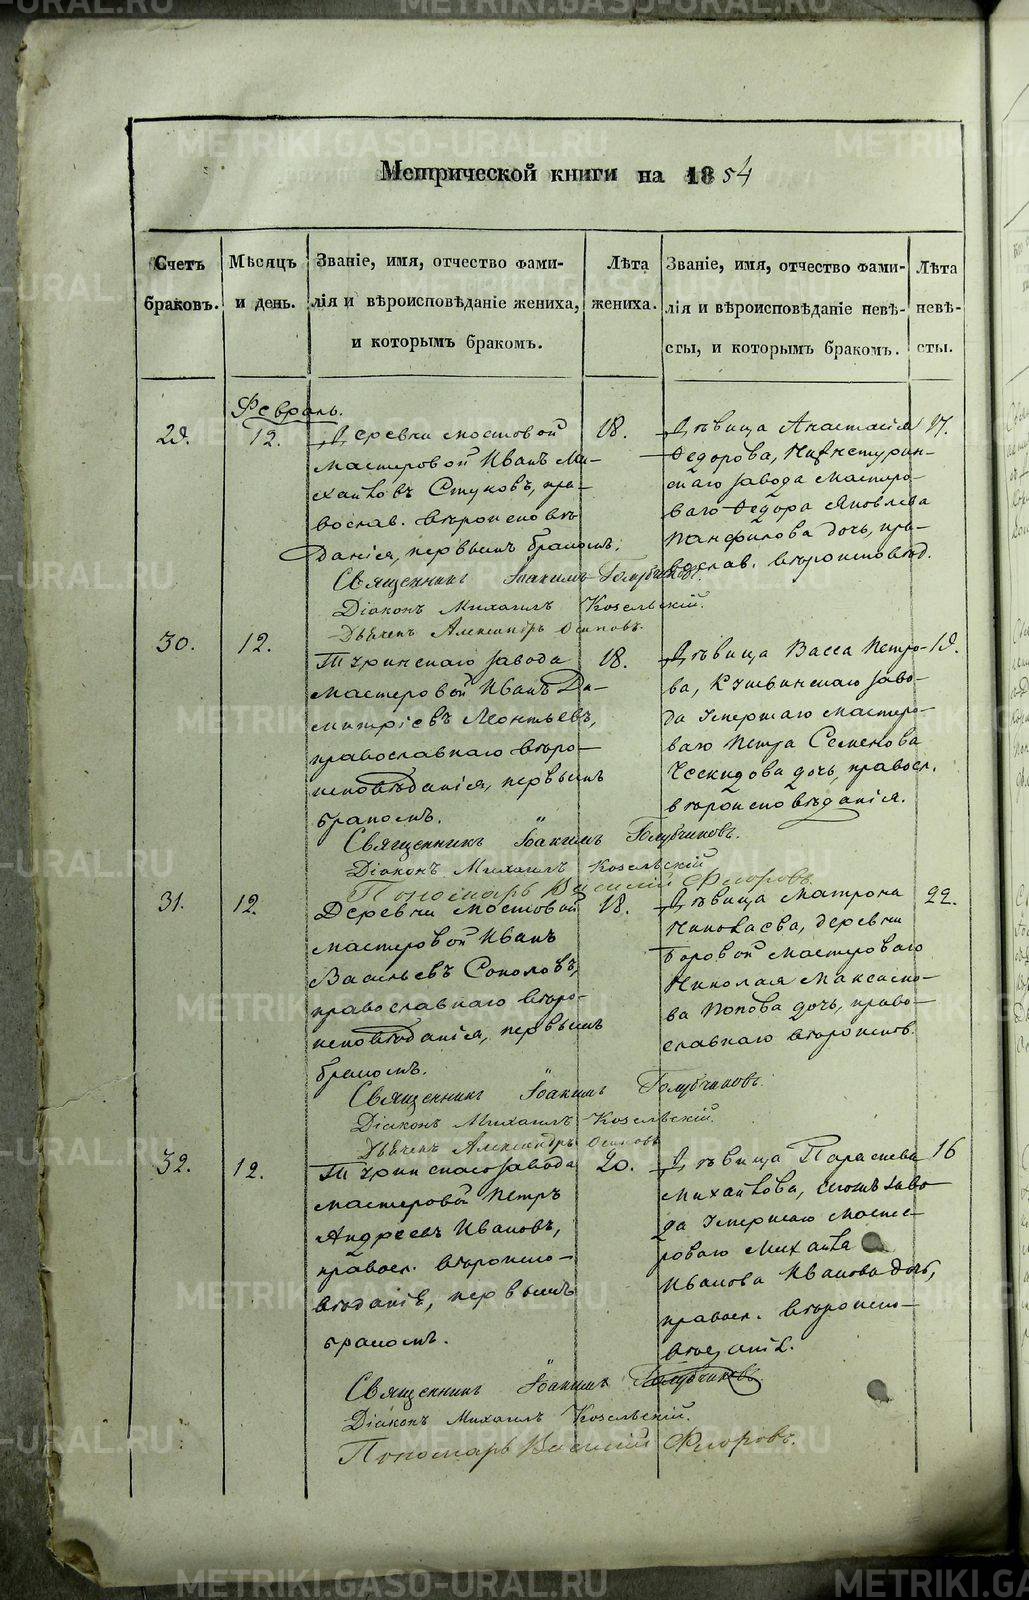 Метрической книги на 1854
Счетъ браковъ.
Мѣсяцъ и день.
Званіе, имя, отчество фами-
лія и вѣроисповѣданіе жениха,
и которымъ бракомъ.
Лѣта жениха.
Званіе, имя, отчество фами-
лія и вѣроисповѣданіе невѣ-
сты, и которымъ бракомъ.
Лѣта невѣ-
сты.
Февраль.
29.
12.
Деревни Мостовой
мастеровой Иванъ Ми-
хайловъ Стуковъ, пра-
вослав. вѣроисповѣ-
данія, первымъ бракомъ.
18.
Дѣвица Анастасія
Федорова, Нижнетурин-
скаго завода мастеро-
ваго Федора Яковлева
Панфилова дочь, пра-
вослав. вѣроисповѣд.
17.
Священникъ Іоакимъ Голубчиковъ.
Діаконъ Михаилъ Козельскій.
Дьячекъ Александръ Осиповъ.
30.
12.
Туринскаго завода
мастеровой Иванъ Ди-
митріевъ Леонтьевъ,
православнаго вѣро-
исповѣданія, первымъ
бракомъ.
18.
Дѣвица Васса Петро-
ва, Кушвинскаго заво-
да умершаго мастеро-
ваго Петра Семенова
дочь, правосл.
вѣроисповѣданія.
19.
Священникъ Іоакимъ Голубчиковъ.
Діаконъ Михаилъ Козельскій
Пономарь Василій Флоровъ
31.
12.
Деревни Мостовой
мастеровой Иванъ
Васильевъ Соколовъ,
православнаго вѣро-
исповѣданія, первымъ
бракомъ.
18.
Дѣвица Матрона
Николаева, деревни
Боровой мастероваго
Николая Максимо-
ва Попова дочь, право-
славнаго вѣроиспов.
22.
Священникъ Іоакимъ Голубчиковъ.
Діаконъ Михаилъ Козельскій.
Дьячекъ Александръ Осиповъ
32.
12.
Туринскаго завода
мастеровой Петръ
Андреевъ Ивановъ,
правосл. вѣроиспо-
вѣданія, первымъ
бракомъ.
20.
Дѣвица Параскева
Михайлова, заво-
да умершаго масте-
роваго Михаила
Иванова Иванова дочь,
правосл. вѣроиспо-
вѣданія.
16
Священникъ Іоакимъ Голубчиковъ.
Діаконъ Михаилъ Козельскій.
Пономарь Василій Флоровъ.
METRIKI.GASO-URAL.RU